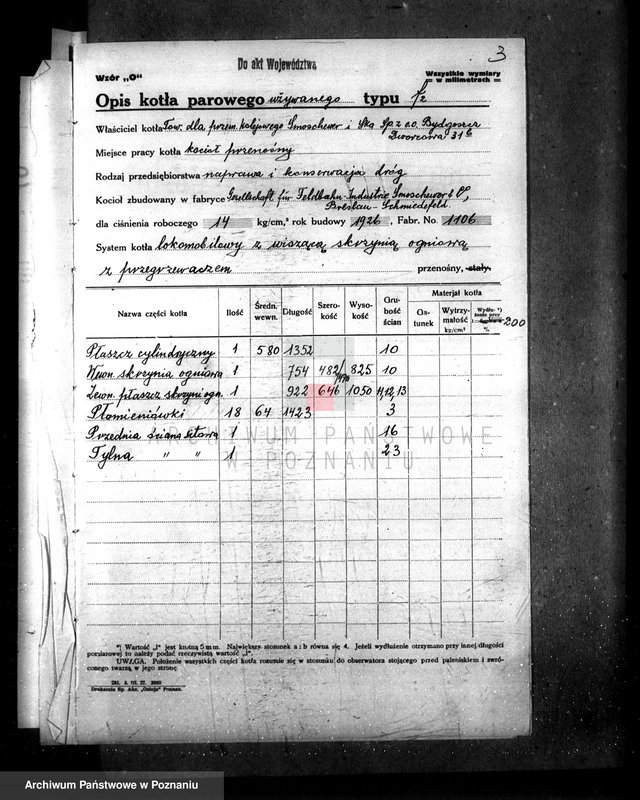 3
Do akt Województwa
Wzór „O“
Wszystkie wymiary
w milimetrach
Opis kotła parowego używanego typu 1/2
Właściciel kotła Tow. dla przem. kolejowego Smoschewer i Ska Sp z o.o. Bydgoszcz
Dworcowa 31b
Miejsce pracy kotła kocioł przenośny
Rodzaj przedsiębiorstwa naprawa i konserwacja dróg
Kocioł zbudowany w fabryce Gesellschaft für Feldbahn-Industrie Smoschewer & Co,
Breslau-Schmiedefeld.
dla ciśnienia roboczego 14 kg/cm,² rok budowy 1926, Fabr. No. 1106
System kotła lokomobilowy z wiszącą skrzynią ogniową
z przegrzewaczem przenośny, stały.
Nazwa części kotła Ilość Średn. wewn. Długość Szerokość Wysokość Grubość ścian Materjał kotła
Gatunek Wytrzymałość kg/cm² Wydłużenie przy 200 %
Płaszcz cylindryczny 1 580 1352 10
Wewn. skrzynia ogniowa 1 754 482/ 825 10
Zewn. płaszcz skrzyni ogn. 1 922 646 1050 11, 12, 13
Płomieniówki 18 64 1423 3
Przednia ściana sitowa 1 16
Tylna „ „ 1 23
ARCHIWUM PAŃSTWOWE
W POZNANIU
*) Wartość „l“ jest krotną 5 mm. Największy stosunek a : b równa się 4. Jeżeli wydłużenie otrzymano przy innej długości
pomiarowej to należy podać rzeczywistą wartość „l“.
UWAGA. Położenie wszystkich części kotła rozumie się w stosunku do obserwatora stojącego przed paleniskiem i zwróconego twarzą w jego stronę.
Drukarnia Sp. Akc. „Ostoja“ Poznań.
Archiwum Państwowe w Poznaniu